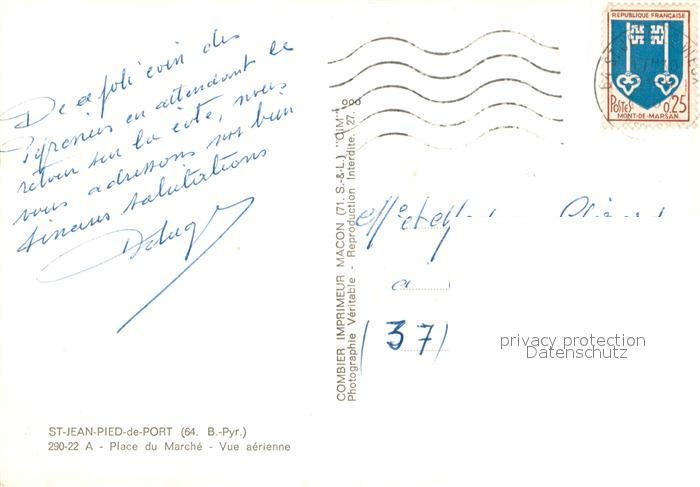 De ce joli coin des
Pyrénées en attendant le
retour sur la côte, nous
vous adressons nos bien
sincères salutations
ST-JEAN-PIED-de-PORT (64. B.-Pyr.)
290-22 A - Place du Marché - Vue aérienne
COMBIER IMPRIMEUR MACON (71. S.-&-L.) "CIM"
Photographie Véritable - Reproduction Interdite. 27.
REPUBLIQUE FRANÇAISE
POSTES 0,25
MONT-DE-MARSAN
à
(37)
privacy protection
Datenschutz